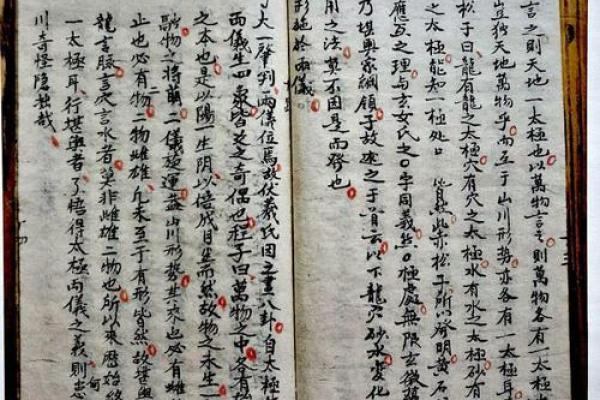 言之則天地一太極也以萬物言之則萬物各有一太極
豈獨天地萬物乎而至于山川形勢亦各有一太極耳
松子曰龍有龍之太極穴有穴之太極水有水之太極砂有
之太極能知一極処 皆然此赤松子所以發明黃石
應互之理与玄女氏之〇字同義然〇極處無限玄微
乃堪輿家綱領子故述之于首云以下龍穴砂水變化
用之法莫不因是而發也
形施於兩儀
大一肇判兩儀位焉故伏羲氏因之畫八卦自太極
而儀生四象皆爻之奇偶也程子曰萬物之中各有
之本也是以陽一生阴以倍成自生而然故物之未生一
融物之將萌二儀旋運益山川形勢其穴也必有雌
止也必有物二物雌雄凢未至于有形皆然故堪輿
龍言脉言穴言水者莫非雌雄二物也所以來歷始終
一太極耳行堪輿者了悟得太極兩儀之義則
川奇怪隐拙哉